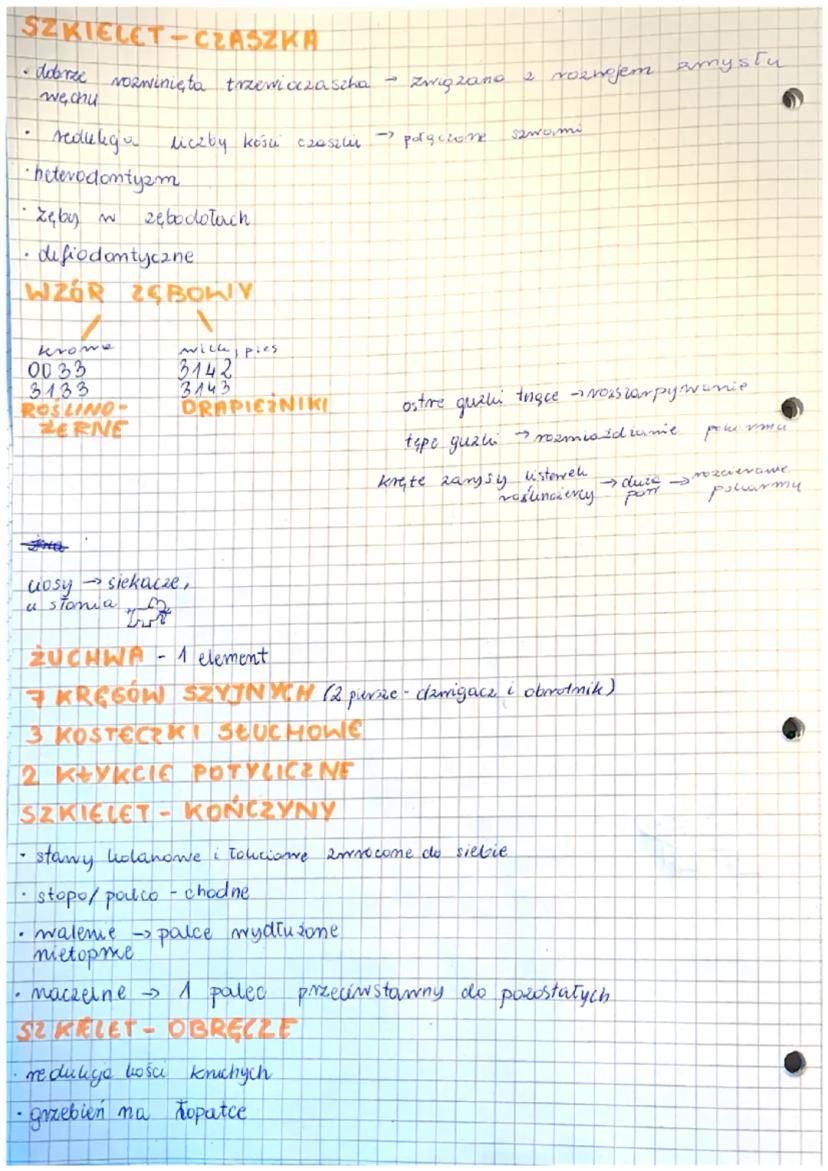 SZKIELET - CZASZKA
• dobrze rozwinięta trzewioczaszka → związane z rozwojem zmysłu
węchu
• redukcja liczby kości czaszki → połączone szwami
• heterodontyzm
• zęby w zębodołach
• difiodontyczne
WZÓR ZĘBOWY
krowa
0033
3133
ROŚLINO-
ŻERNE
wilk, pies
3142
3143
DRAPIEŻNIKI
ostre guzki tnące → rozszarpywanie
tępe guzki → rozmiażdżanie pokarmu
kręte zarysy listewek → duża → rozcieranie
roślinożercy pow pokarmu
ciosy → siekacze,
u słonia
ŻUCHWA - 1 element
7 KRĘGÓW SZYJNYCH (2 pierwsze - dźwigacz i obrotnik)
3 KOSTECZKI SŁUCHOWE
2 KŁYKCIE POTYLICZNE
SZKIELET - KOŃCZYNY
• stawy kolanowe i łokciowe zwrócone do siebie
• stopo/palco - chodne
• walenie → palce wydłużone
nietoperze
• naczelne → 1 palec przeciwstawny do pozostałych
SZKIELET - OBRĘCZE
• redukcja kości kruchych
• grzebień na łopatce